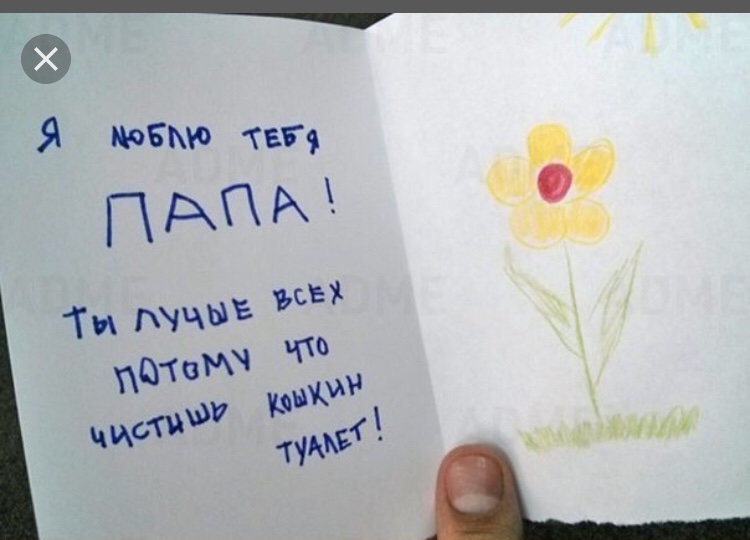 Я ЛЮБЛЮ ТЕБЯ
ПАПА!
ТЫ ЛУЧШЕ ВСЕХ
ПОТОМУ ЧТО
ЧИСТИШЬ КОШКИН
ТУАЛЕТ!
ADME
ADME
ADME
ADME
ADME
ADME
ADME
ADME
ADME
ADME